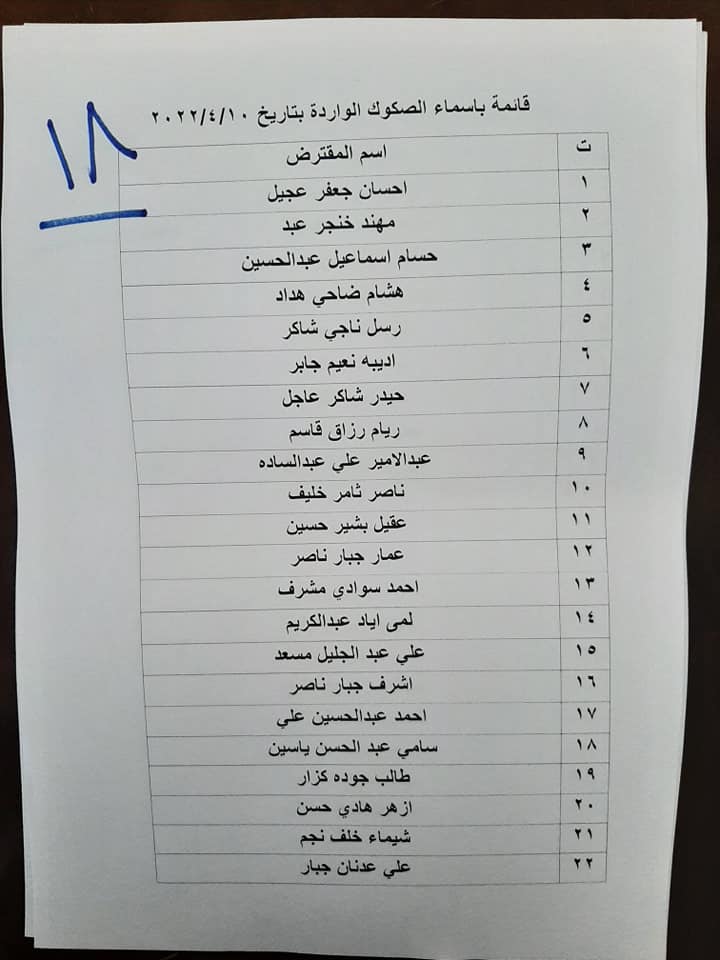 ١٨
قائمة باسماء الصكوك الواردة بتاريخ ٢٠٢٢/٤/١٠
ت اسم المقترض
١ احسان جعفر عجيل
٢ مهند خنجر عبد
٣ حسام اسماعيل عبدالحسين
٤ هشام ضاحي هداد
٥ رسل ناجي شاكر
٦ اديبه نعيم جابر
٧ حيدر شاكر عاجل
٨ ريام رزاق قاسم
٩ عبدالامير علي عبدالساده
١٠ ناصر ثامر خليف
١١ عقيل بشير حسين
١٢ عمار جبار ناصر
١٣ احمد سوادي مشرف
١٤ لمى اياد عبدالكريم
١٥ علي عبد الجليل مسعد
١٦ اشرف جبار ناصر
١٧ احمد عبدالحسين علي
١٨ سامي عبد الحسن ياسين
١٩ طالب جوده كزار
٢٠ ازهر هادي حسن
٢١ شيماء خلف نجم
٢٢ علي عدنان جبار